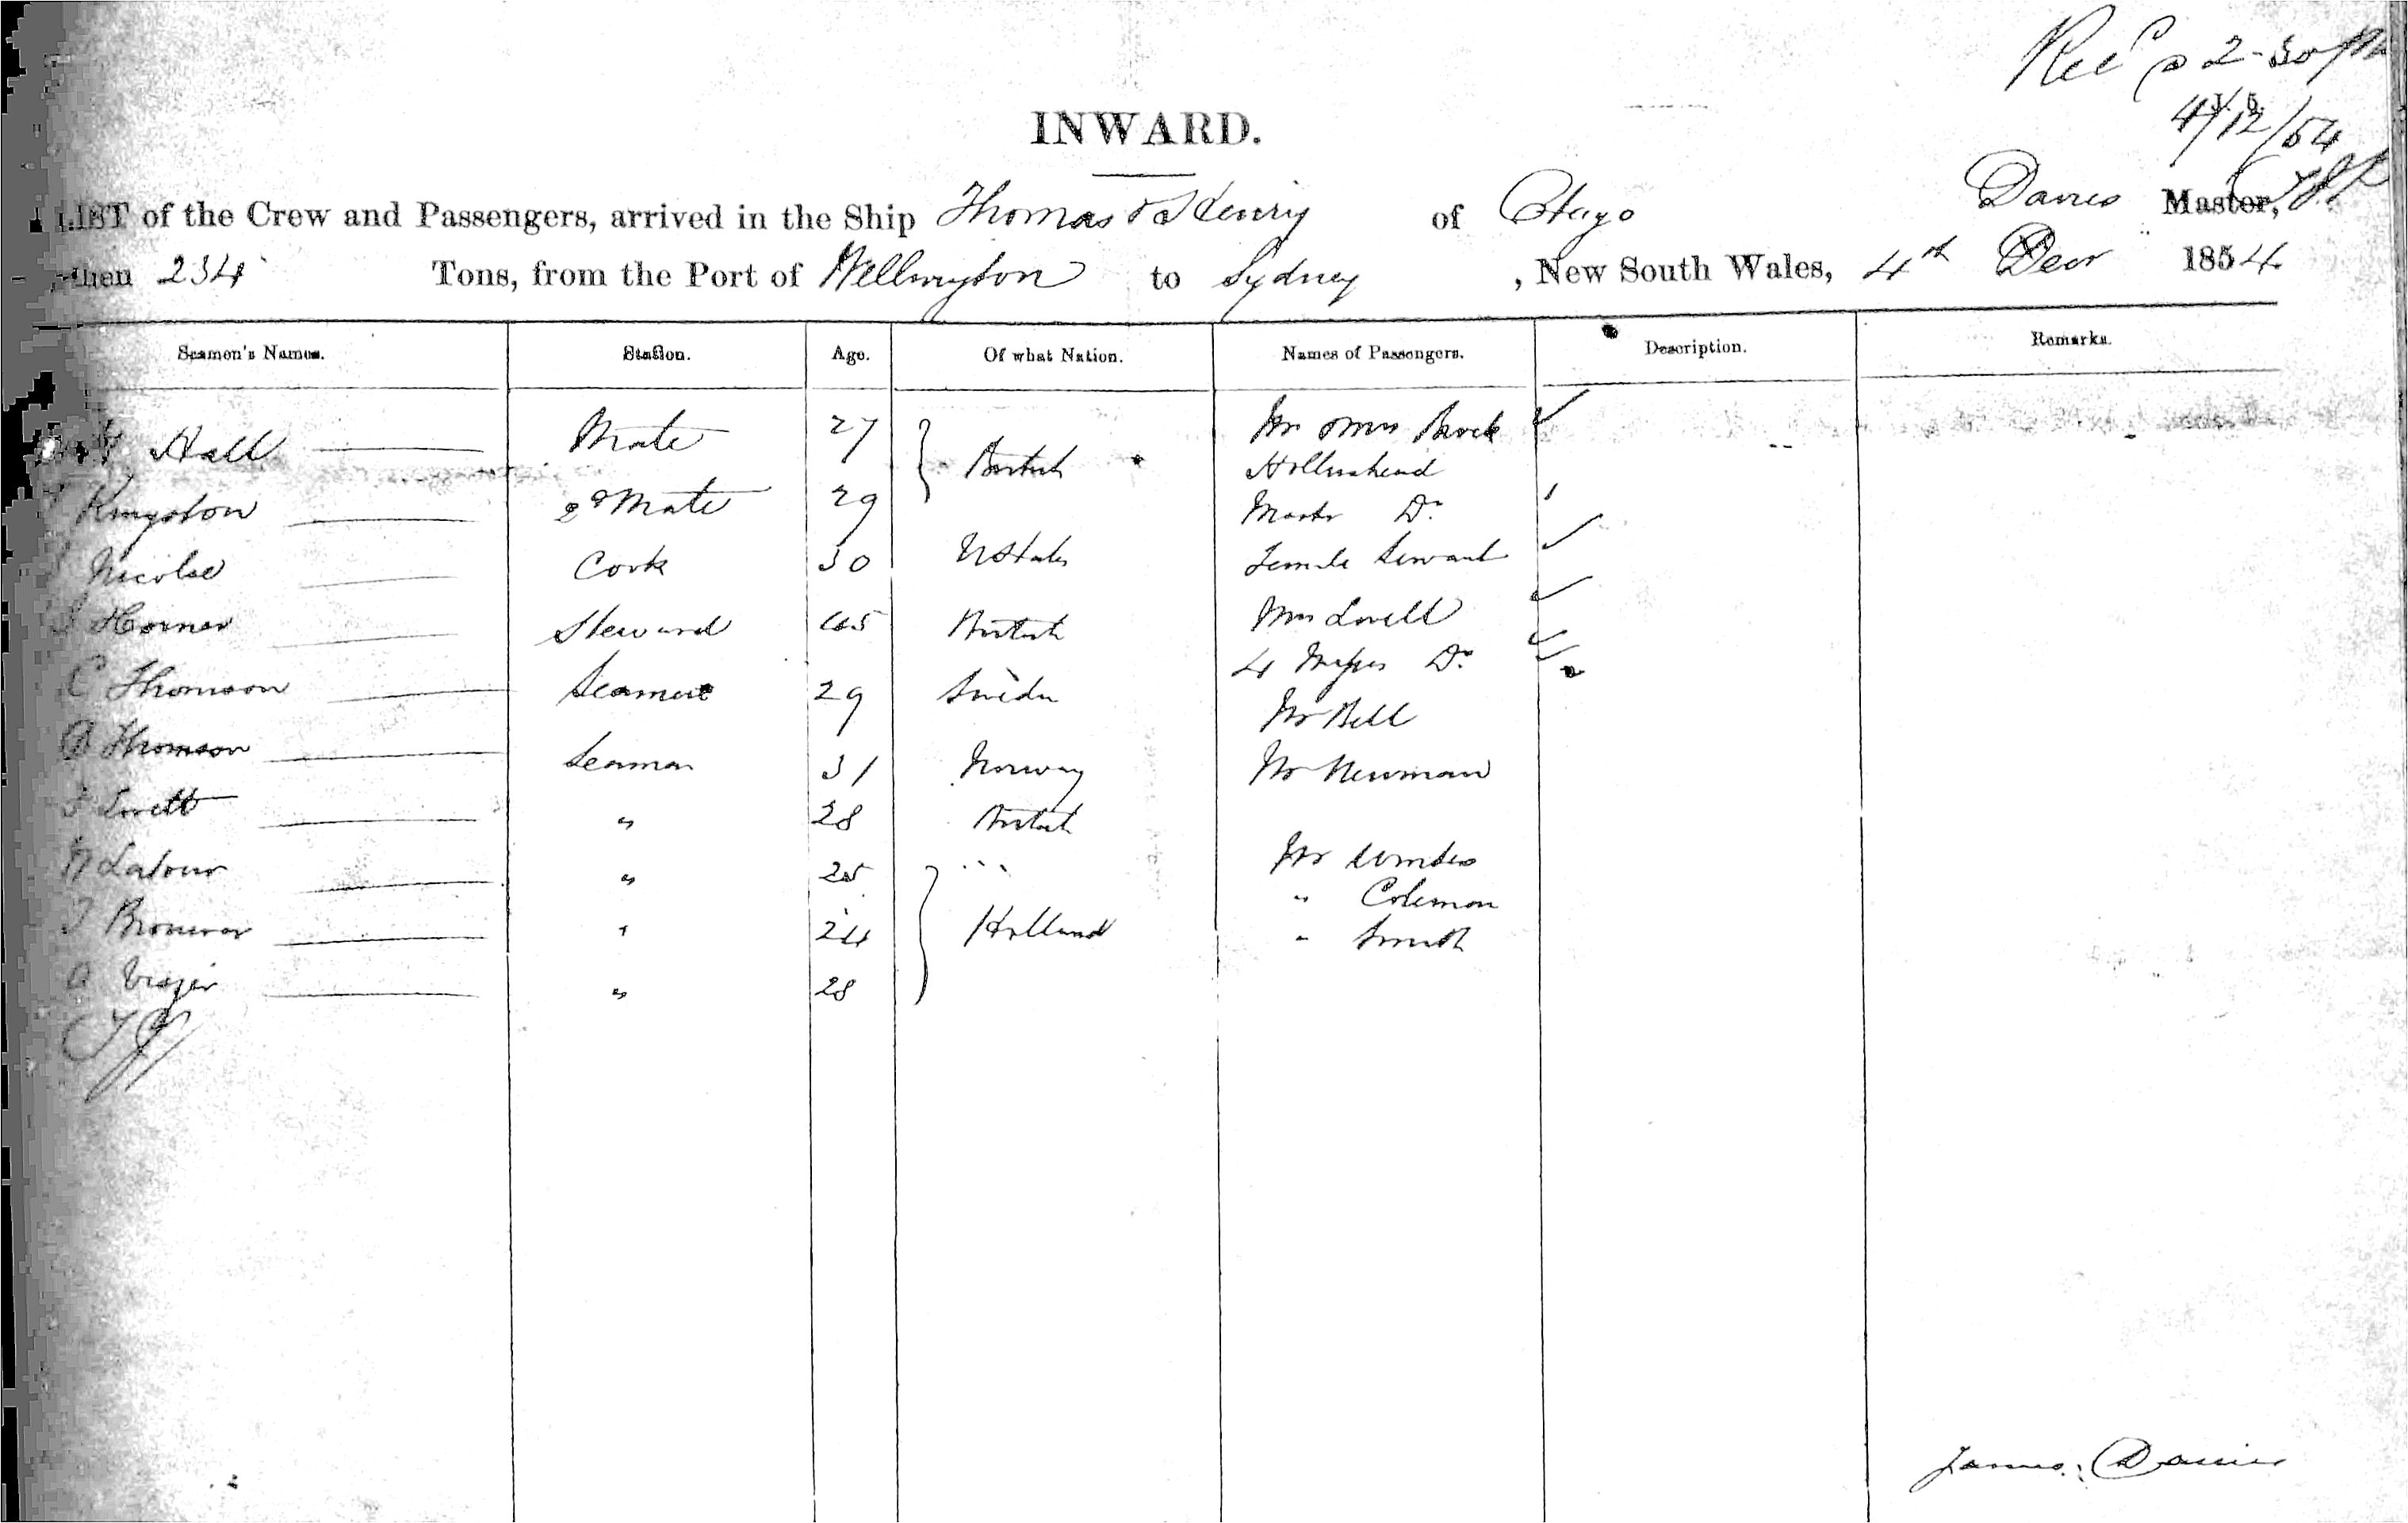 Recd @ 2-30 pm
4/12/54
INWARD.
LIST of the Crew and Passengers, arrived in the Ship Thomas & Henry of Otago Davies Master,
then 234 Tons, from the Port of Wellington to Sydney , New South Wales, 4th Decr 1854
Seamen's Names. Station. Age. Of what Nation. Names of Passengers. Description. Remarks.
Hall Mate 27 British Mr & Mrs
Hollinshead
Kingston 2d Mate 29 Master Do
Nicolse Cook 30 U States Female Servant
Horner Steward 45 British Mrs Lovell
4 Misses Do
C Thomson Seaman 29 Sweden Mr Bell
B Thomson Seaman 31 Norway Mr Newman
" 28 British
N Latour " 25 " Mr
" Coleman
" 24 Holland " Smith
" 28
James Davies